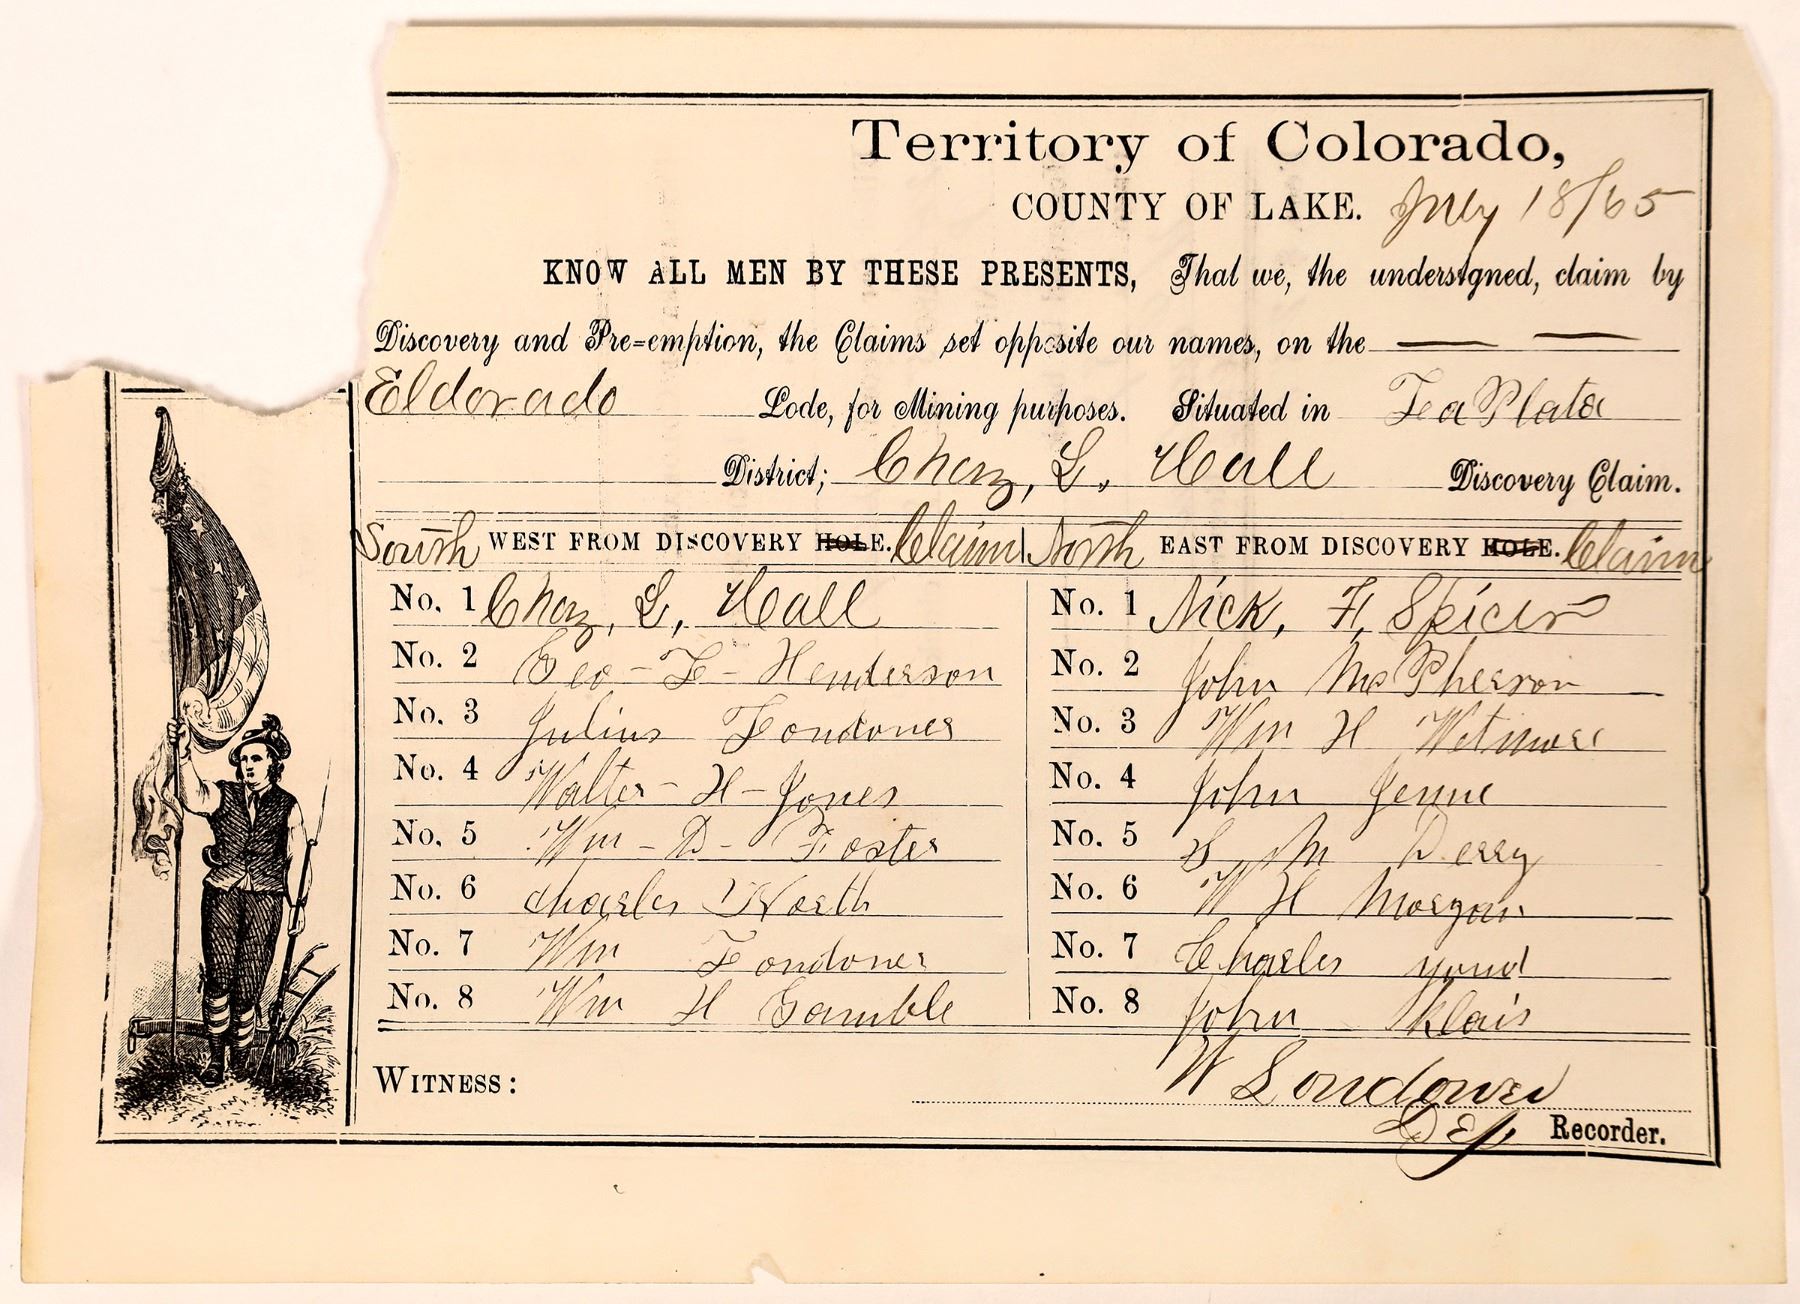 Territory of Colorado,
COUNTY OF LAKE. July 18/65
KNOW ALL MEN BY THESE PRESENTS, That we, the undersigned, claim by
Discovery and Pre=emption, the Claims set opposite our names, on the
Eldorado Lode, for Mining purposes. Situated in La Plata
District; Chaz, L. Hall Discovery Claim.
South WEST FROM DISCOVERY HOLE. Claim North EAST FROM DISCOVERY HOLE. Claim
No. 1 Chaz, L, Hall No. 1 Nick, F, Spicer
No. 2 Geo - L - Henderson No. 2 John McPherson
No. 3 Julius Londoner No. 3 Wm H Wetmore
No. 4 Walter - H - Jones No. 4 John Jenne
No. 5 Wm - D - Foster No. 5 M Derry
No. 6 Charles North No. 6 W H Morgan
No. 7 Wm Londoner No. 7 Charles
No. 8 Wm H Gamble No. 8 John
WITNESS: W Londoner
Dep Recorder.